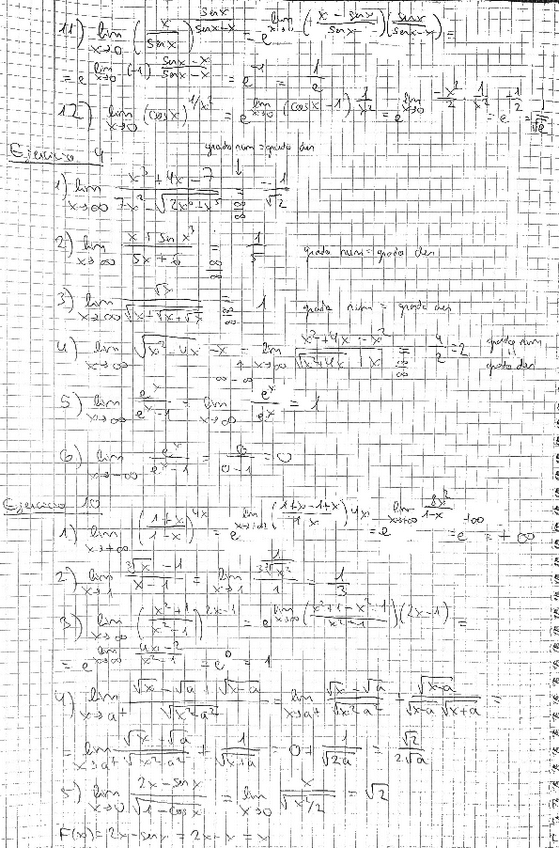 11) lim x→0 (x/sen x)^(sen x/(sen x - x)) = e^(lim x→0 ((x - sen x)/sen x)(sen x/(sen x - x))) =
= e^(lim x→0 (-1) (sen x - x)/(sen x - x)) = e^-1 = 1/e
12) lim x→0 (cos x)^(1/x²) = e^(lim x→0 (cos x - 1) 1/x²) = e^(lim x→0 -x²/2 · 1/x²) = e^(-1/2) = 1/√e
grado num = grado den
1) lim x→∞ (x³ + 4x - 7)/(7x² - √(2x⁶ + x⁵)) = ∞/∞ = -1/√2
2) lim x→∞ (x + sen x³)/(5x + 6) = ∞/∞ = 1/5 grado num = grado den
3) lim x→∞ √x/√(x+√(x+√x)) = ∞/∞ = 1 grado num = grado den
4) lim x→∞ √(x² + 4x) - x = ∞-∞ lim x→∞ (x² + 4x - x²)/(√(x²+4x) + x) = ∞/∞ = 4/2 = 2 grado num = grado den
5) lim x→∞ e^x/(e^x - 1) = lim x→∞ e^x/e^x = 1
6) lim x→-∞ e^x/(e^x - 1) = 0/(0-1) = 0
Ejercicio 10
1) lim x→+∞ ((1+x)/(1-x))^(4x) = = e^(lim x→+∞ 8x²/(1-x)) = e^+∞ = +∞
2) lim x→1 (∛x - 1)/(x - 1) = lim x→1 (1/(3∛x²))/1 = 1/3
3) lim x→∞ ((x²+1)/(x²-1))^(2x-1) = e^(lim x→∞ ((x²+1-x²+1)/(x²-1))(2x-1)) =
= e^(lim x→∞ (4x-2)/(x²-1)) = e^0 = 1
4) lim x→a+ (√x - √a + √(x-a))/√(x²-a²) = lim x→a+ (√x - √a)/√(x²-a²) + √(x-a)/(√(x-a) √(x+a)) =
= lim x→a+ (√x - √a)/√(x²-a²) + 1/√(x+a) = 0 + 1/√(2a) = √2/(2√a)
5) lim x→0 (2x - sen x)/√(1 - cos x) = lim x→0 x/√(x²/2) = √2
F(x) = 2x - sen x = 2x - x = x